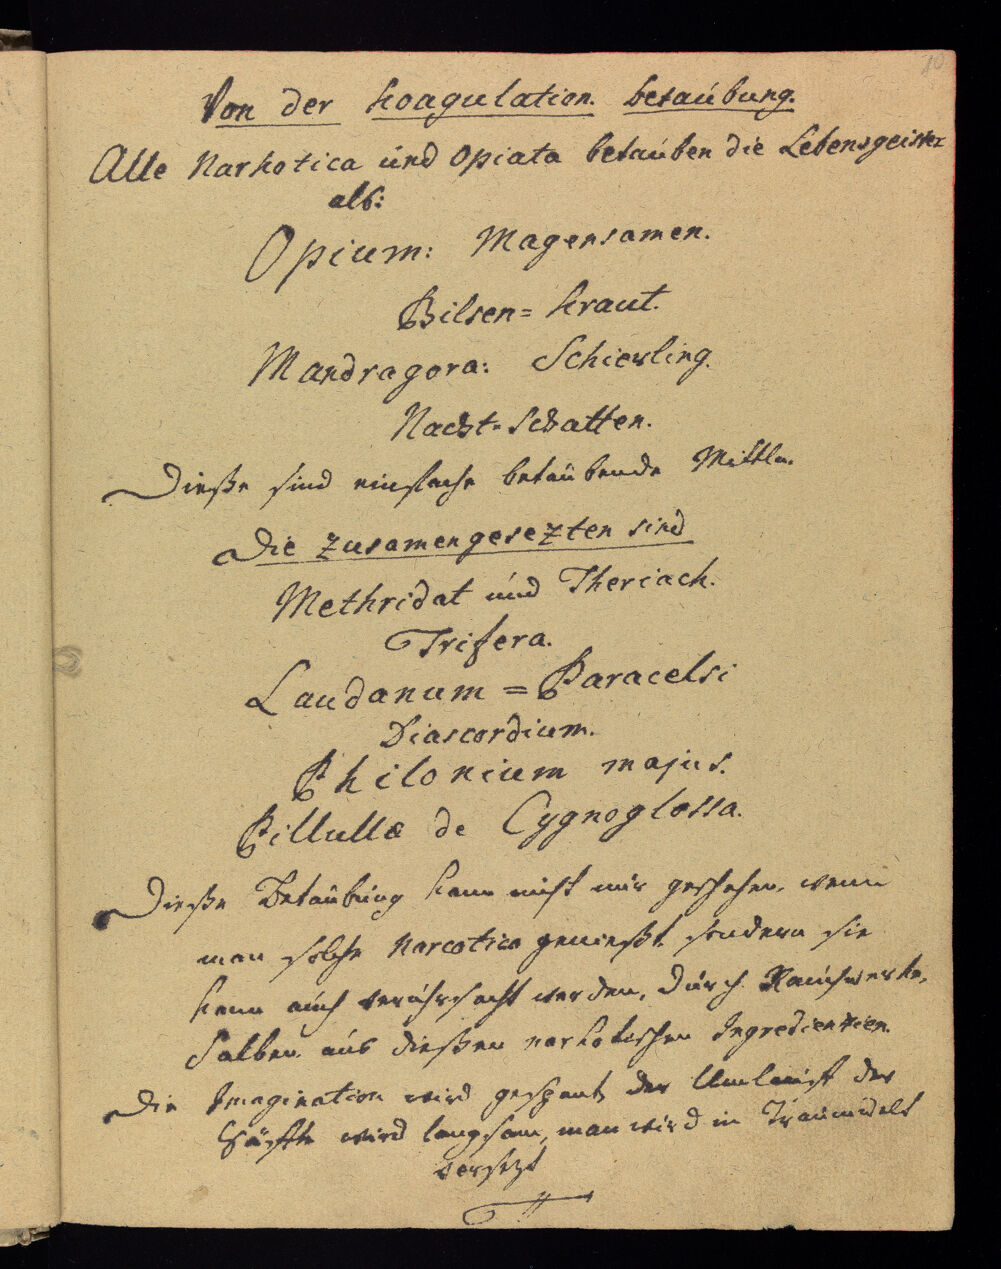 10
Von der Koagulation. betaübung.
Alle Narkotica und Opiata betaüben die Lebensgeister
als:
Opium: Magensamen.
Bilsen= Kraut.
Mandragora: Schierling.
Nacht=Schatten.
Dieße sind einfache betaübende Mittln.
Die zusamengesezten sind
Methridat und Theriach.
Trifera.
Laudanum = Paracelsi
Diascordium.
Philonium majus.
Pillullæ de Cygnoglossa.
Dieße Betaübung kann nicht nur geschehen, wenn
man solche Narcotica genießt, sondern sie
kann auch verührsacht werden, durch Rauchwerke,
Salben aus dießen narkotischen Ingredienzien.
Die Imagination wird gespant, der Umlauf der
Säfte wird langsam, man wird in Traumwelt
versezt